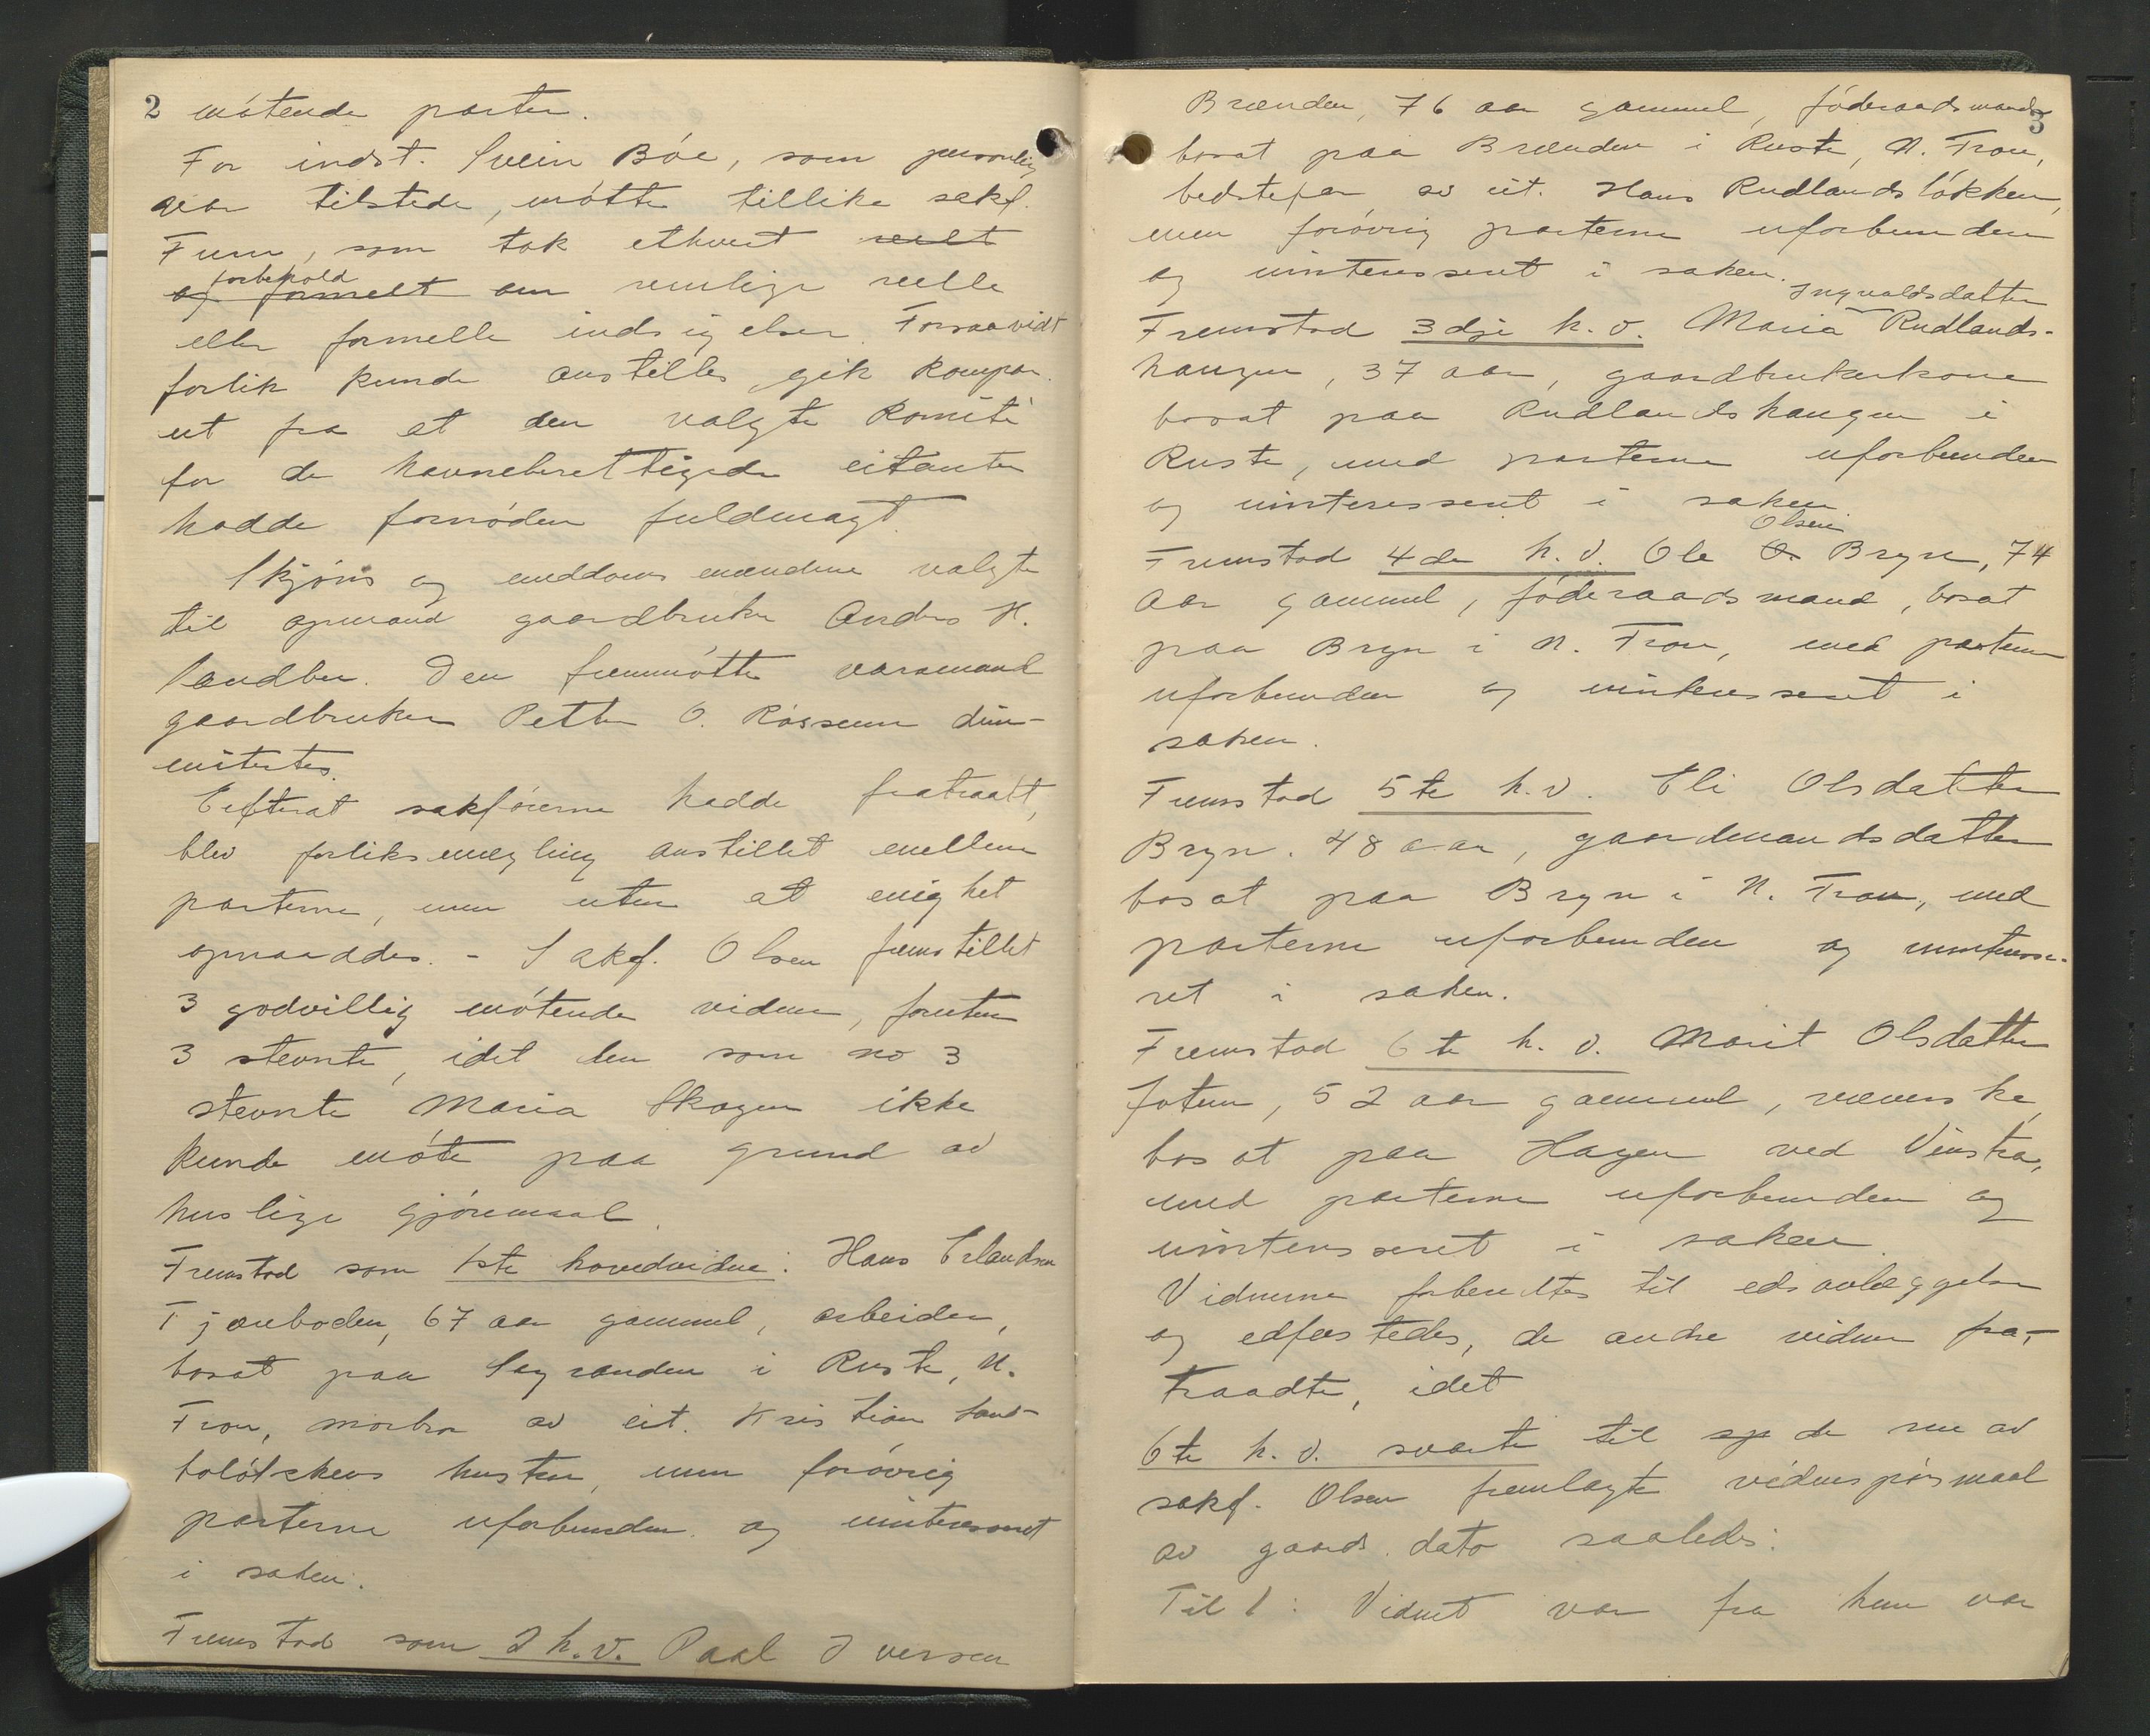 2 møtende parter.
For indst. Svein Bøe, som personlig
var tilstede, møtte tillike sakf.
Furu, som tok ethvert reelt
forbehold
og formelt om rimelige reelle
eller formelle indsigelser. Forsaavidt
forlik kunde anstilles gik kompar.
ut fra at den valgte komité
for de havneberettigede citanter
hadde fornøden fuldmagt.
Skjøns og meddomsmændene valgte
til opmand gaardbruker Anders H.
Sandbu. Den fremmøtte varamand
gaardbruker Petter O. Røssum dim-
mitertes.
Efterat sakførerne hadde fratraadt,
blev forliksmegling anstillet mellem
parterne, men uten at enighet
opnaaddes. - Sakf. Olsen fremstillet
3 godvillig møtende vidner, foruten
3 stevnte, idet den som no 3
stevnte Maria Skogen ikke
kunde møte paa grund av
huslige gjøremaal.
Fremstod som 1ste hovedvidne: Hans Erlandsen
Tjønboden, 67 aar gammel, arbeider,
bosat paa Sagranden i Ruste, N.
Fron, morbror av cit. Kristian
hustru, men forøvrig
parterne uforbunden og uinteressert
i saken.
Fremstod som 2 h.v. Paal Iversen
3
Brænden, 76 aar gammel, føderaadsmand
bosat paa Brænden i Ruste, N. Fron,
bedstefar av cit. Hans Rudlandsløkken,
men forøvrig parterne uforbunden
og uinteressert i saken.
Ingvaldsdatter
Fremstod 3dje h.v. Maria Rudlands-
haugen, 37 aar, gaardbrukerkone
bosat paa Rudlandshaugen i
Ruste, med parterne uforbunden
og uinteressert i saken.
Olsen
Fremstod 4de h.v. Ole O. Bryn, 74
aar gammel, føderaadsmand, bosat
paa Bryn i N. Fron, med parterne
uforbunden og uinteressert i
saken.
Fremstod 5te h.v. Eli Olsdatter
Bryn. 48 aar, gaardmandsdatter
bosat paa Bryn i N. Fron, med
parterne uforbunden og uinteresse-
ret i saken.
Fremstod 6te h.v. Marit Olsdatter
Jotun, 52 aar gammel, væverske,
bosat paa Hagen ved Vinstra,
med parterne uforbunden og
uinteressert i saken.
Vidnerne forberedtes til edsavlæggelse
og edfæstedes, de andre vidner fra-
traadte, idet
6te h.v. svarte til sp de nu av
sakf. Olsen fremlagte vidnespørsmaal
av gaards. dato saaledes:
Til 1: Vidnet var fra hun var